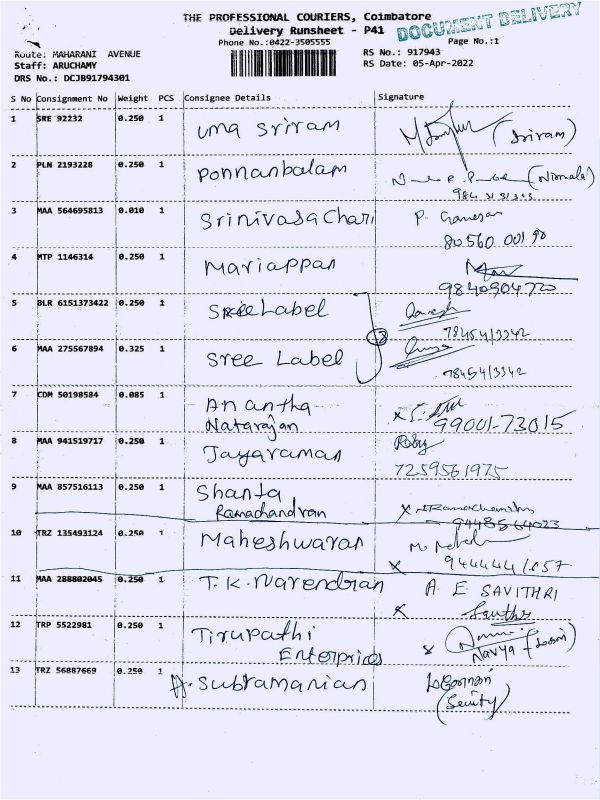 THE PROFESSIONAL COURIERS, Coimbatore
DOCUMENT DELIVERY
Delivery Runsheet - P41
Phone No.:0422-3505555
Page No.:1
Route: MAHARANI AVENUE
RS No.: 917943
Staff: ARUCHAMY
RS Date: 05-Apr-2022
DRS No.: DCJB91794301
S No Consignment No Weight PCS Consignee Details Signature
1 SRE 92232 0.250 1 Uma Sriram (Sriram)
2 PLN 2193228 0.250 1 Ponnanbalam (Nirmala)
3 MAA 564695813 0.010 1 Srinivasa Chari P. Ganesan
80560 00190
4 MTP 1146314 0.250 1 Mariappan
9840904720
5 BLR 6151373422 0.250 1 Sree Label
7845413342
6 MAA 275567894 0.325 1 Sree Label
7845413342
7 CDM 50198584 0.085 1 Anantha
Natarajan
99001-73015
8 MAA 941519717 0.250 1 Jayaraman
7259561975
9 MAA 857516113 0.250 1 Shanta
Ramachandran
9448564023
10 TRZ 135493124 0.250 1 Maheshwaran
11 MAA 288802045 0.250 1 T.K. Narendran A E SAVITHRI
12 TRP 5522981 0.250 1 Tirupathi
Enterprices
Navya
13 TRZ 56887669 0.250 1 A. Subramanian